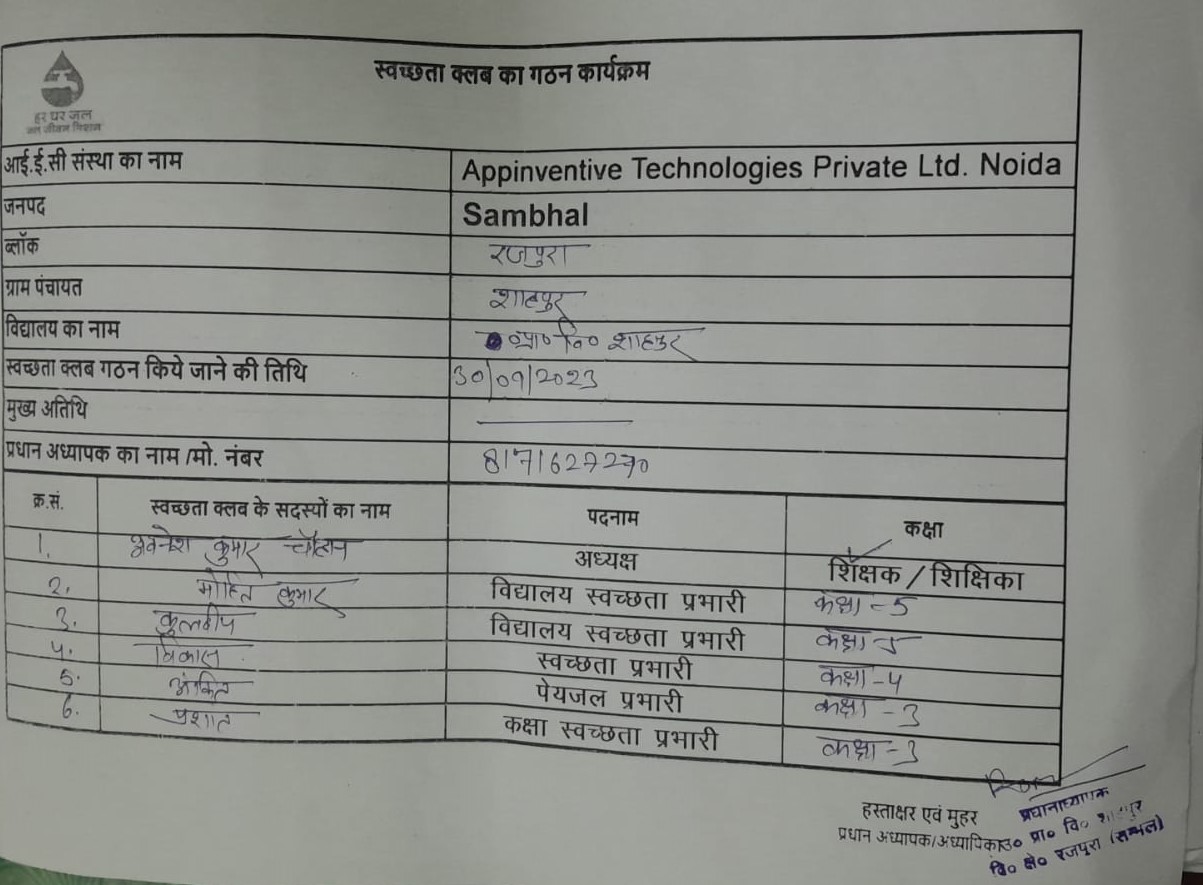 स्वच्छता क्लब का गठन कार्यक्रम
हर घर जल
जल जीवन मिशन
आई.ई.सी संस्था का नाम Appinventive Technologies Private Ltd. Noida
जनपद Sambhal
ब्लॉक रजपुरा
ग्राम पंचायत शाहपुर
विद्यालय का नाम प्रा० वि० शाहपुर
स्वच्छता क्लब गठन किये जाने की तिथि 30/09/2023
मुख्य अतिथि
प्रधान अध्यापक का नाम /मो. नंबर 8171627270
क्र.सं. स्वच्छता क्लब के सदस्यों का नाम पदनाम कक्षा
1. अवनेश कुमार चौहान अध्यक्ष शिक्षक / शिक्षिका
2. मोहित कुमार विद्यालय स्वच्छता प्रभारी कक्षा - 5
3. कुलदीप विद्यालय स्वच्छता प्रभारी कक्षा - 5
4. विकास स्वच्छता प्रभारी कक्षा - 4
5. अंकित पेयजल प्रभारी कक्षा - 3
6. प्रशांत कक्षा स्वच्छता प्रभारी कक्षा - 3
हस्ताक्षर एवं मुहर
प्रधान अध्यापक/अध्यापिका
प्रधानाध्यापक
उ० प्रा० वि० शाहपुर
वि० क्षे० रजपुरा (सम्भल)